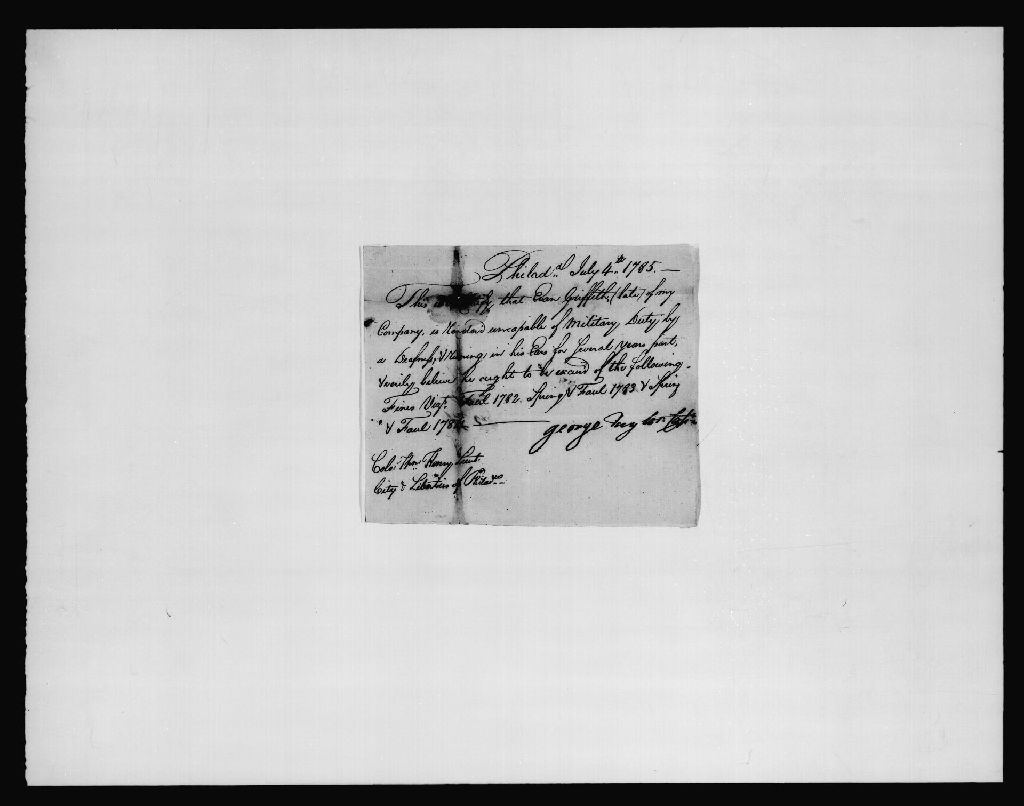 Philad.a July 4.th 1785. —
This is to Certify, that Evan Griffeth, (late) of my
Company, is Rendard uncapable of Military Duty by
a Deafness, & Running in his Ears for Several Years past,
& verily believe he ought to be excusd of the following
Fines Viz.t Faul 1782. Spring & Faul 1783. & Spring
& Faul 1784
George Capt.n
Colo. Tho.s Henry Lieut.
City & Liberties of Philad.a